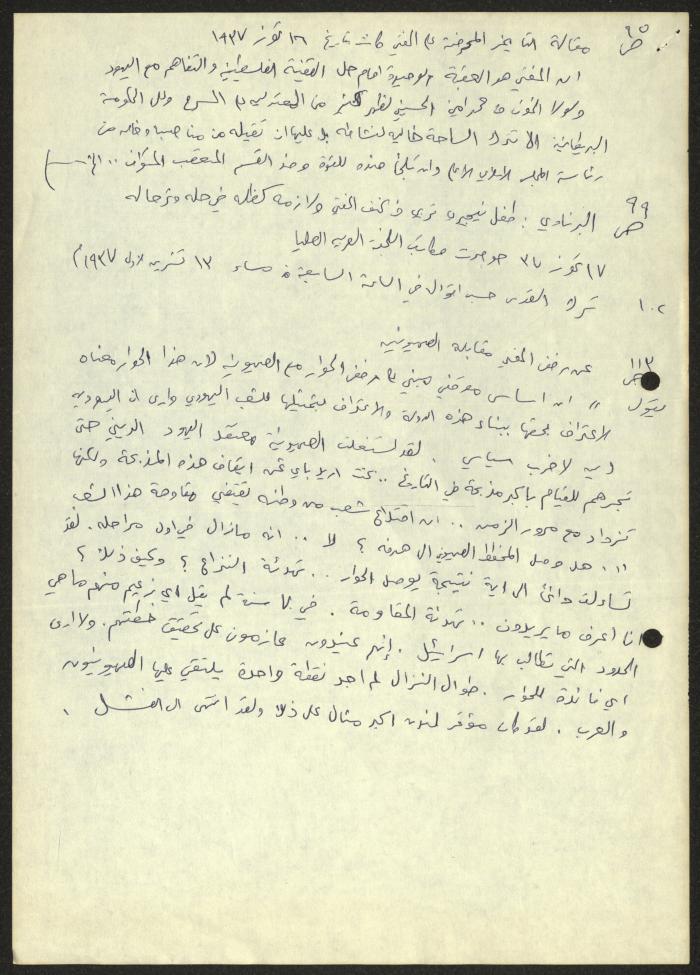 ص ٩٥ مقالة التايمز المحرضة على المفتي كانت تاريخ ١٦ تموز ١٩٣٧
ان المفتي هو العقبة الوحيدة امام حل القضية الفلسطينية والتفاهم مع اليهود
ولولا الخوف من محمد امين الحسيني لظهر كثير من المعتدلين على المسرح وعلى الحكومة
البريطانية الا تترك الساحة خالية لنشاطه بل عليها ان تقيله من مناصبه وخاصة من
رئاسة المجلس الاسلامي الاعلى وان تلجأ ضده للقوة وضد القسم المتعصب
ص ٩٩ البرناوي : طفل نيجيري تربى في كنف المفتي ولازمه كظله في حله وترحاله
١٧ تموز ٣٧ هوجمت مكاتب اللجنة العربية العليا
١٠٢ ترك القدس حسب اقوال في الساعة السابعة من مساء ١٣ تشرين اول ١٩٣٧ م
ص ١١٣ عن رفض المفتي مقابلة الصهيونية
يقول " ان اساس موقفي مبني على رفض الحوار مع الصهيونية لان هذا الحوار معناه
الاعتراف بحقها ببناء هذه الدولة والاعتراف بتمثيلها للشعب اليهودي وارى ان اليهودية
دين لا حزب سياسي . لقد استغلت الصهيونية معتقد اليهود الديني حتى
تجرهم للقيام بأكبر مذبحة في التاريخ .. كنت اريد باي ثمن ايقاف هذه المذبحة ولكنها
تزداد مع مرور الزمن .. ان اقتلاع شعب من وطنه يقتضي مقاومة هذا الشعب
".. هل وصل المخطط الصهيوني الى هدفه ؟ لا .. انه مازال في اول مراحله . لقد
تساءلت دائما الى اية نتيجة يوصل الحوار .. تهدئة النزاع ؟ وكيف ذلك ؟
انا اعرف ما يريدون .. تهدئة المقاومة . في سنة لم يقل اي زعيم منهم ما هي
الحدود التي تطالب بها اسرائيل . إنهم عنيدون عازمون على تحقيق خطتهم . ولا ارى
اي فائدة للحوار . طوال النزال لم اجد نقطة واحدة يلتقي عليها الصهيونيون
والعرب . لقد كان مؤتمر لندن اكبر مثال على ذلك ولقد انتهى الى الفشل .